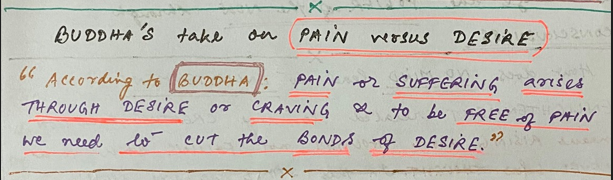 BUDDHA'S take on PAIN versus DESIRE
"According to BUDDHA: PAIN or SUFFERING arises
THROUGH DESIRE or CRAVING & to be FREE of PAIN
we need to CUT the BONDS of DESIRE."